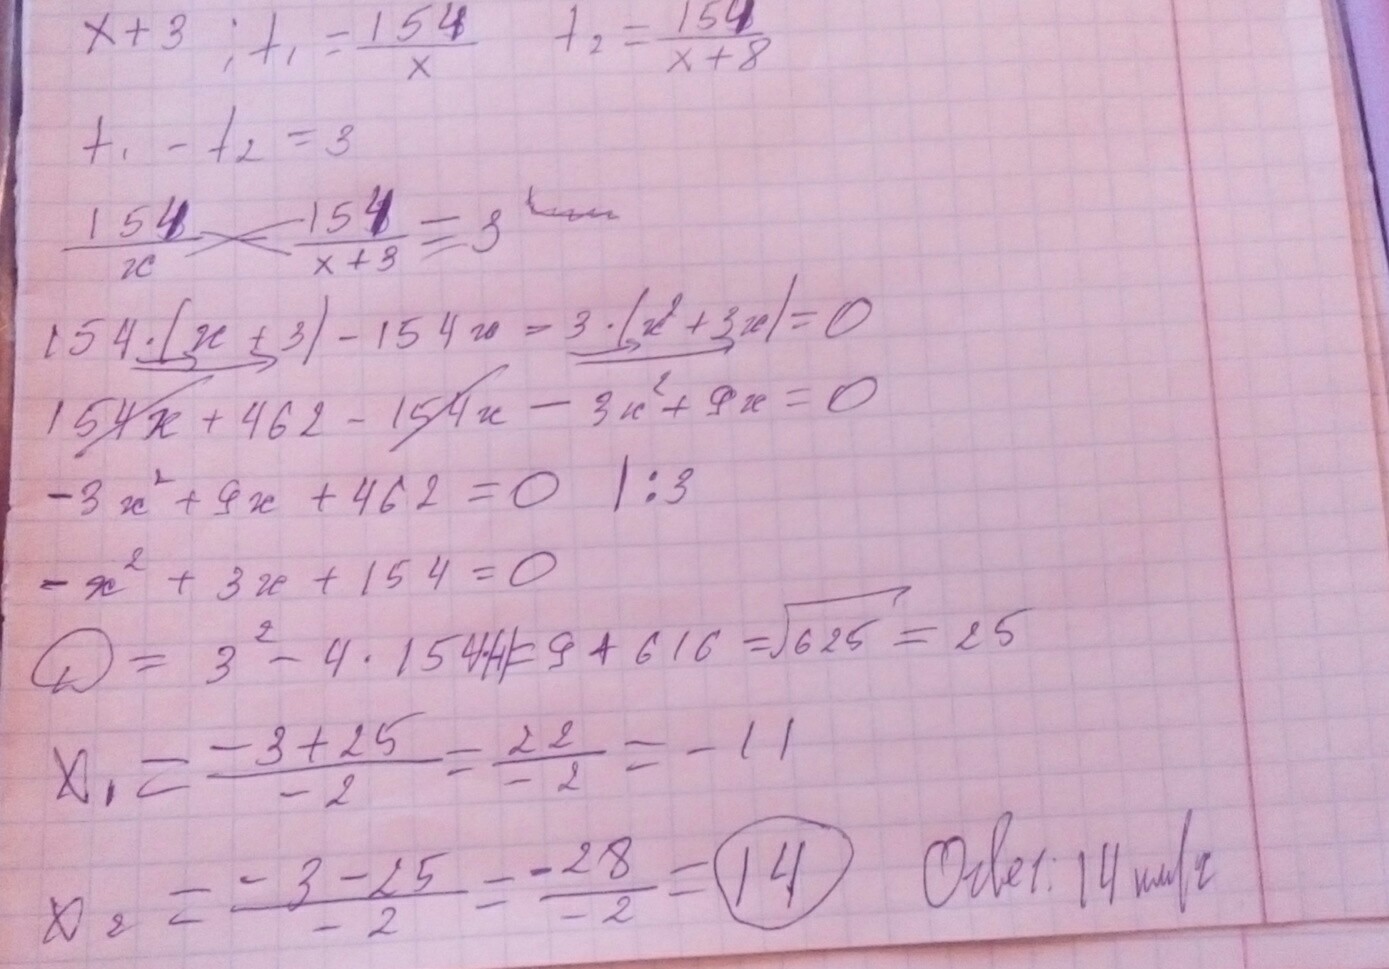 x+3 ; t₁ = 154/x t₂ = 154/x+8
t₁ - t₂ = 3
154/x - 154/x+3 = 3
154·(x+3) - 154x - 3·(x²+3x) = 0
154x + 462 - 154x - 3x² + 9x = 0
-3x² + 9x + 462 = 0 | :3
-x² + 3x + 154 = 0
D = 3² - 4·154 = 9 + 616 = √625 = 25
x₁ = -3+25/-2 = 22/-2 = -11
x₂ = -3-25/-2 = -28/-2 = 14 Ответ: 14 км/ч